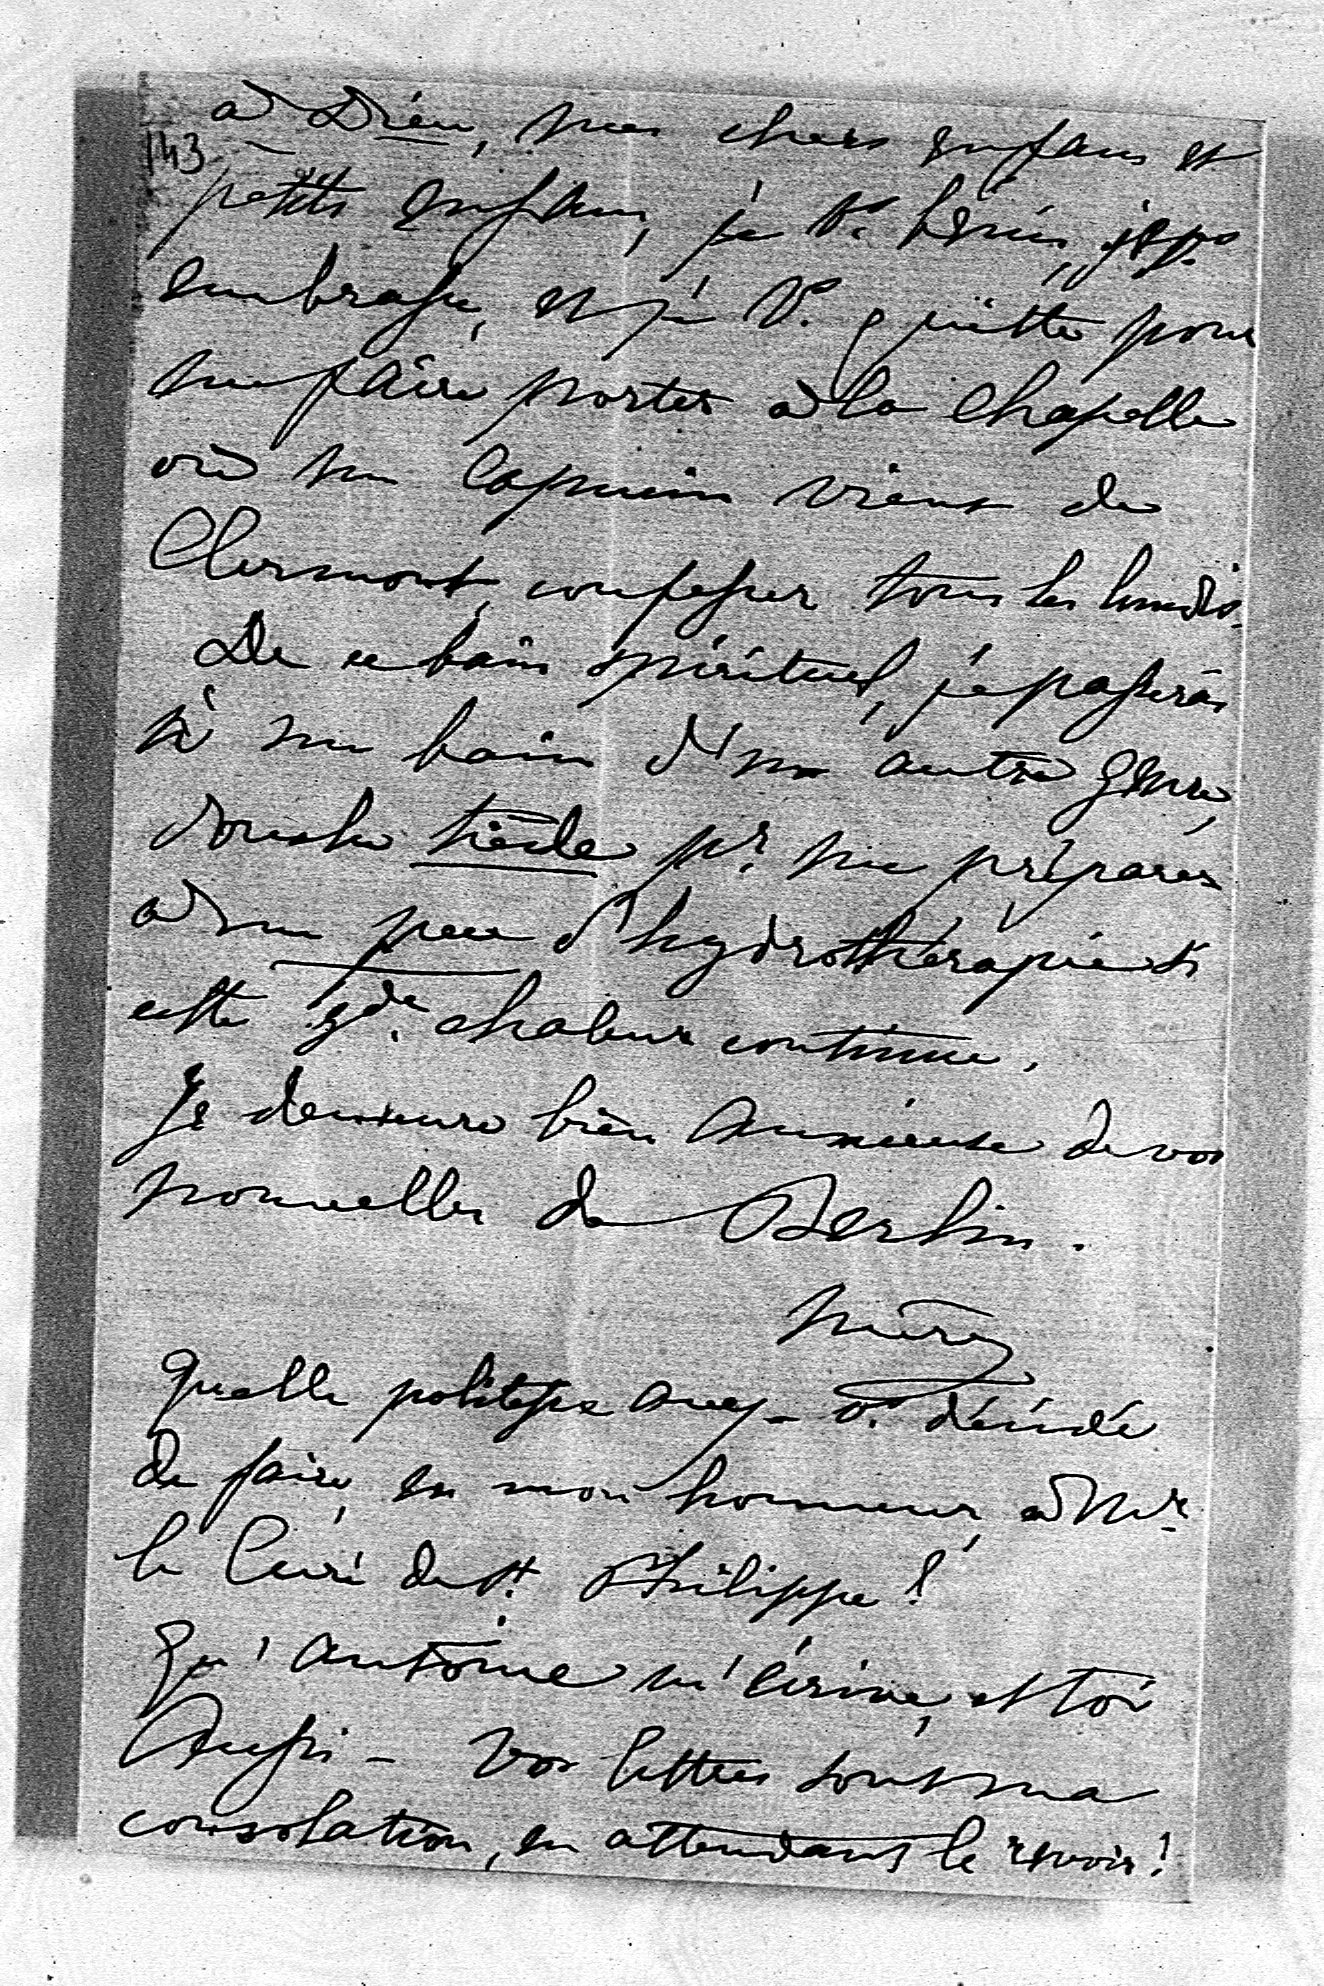 à Dieu, mes chers enfans et
143
petits enfans, je vs. bénis, je vs
embrasse, et je vs. quitte pour
me faire porter à la chapelle
où un Capucin vient de
Clermont, confesser tous les lundis.
De ce bain spirituel, je passerai
à un bain d'un autre genre,
douche tiède pr. me préparer
à un peu d'hydrothérapie si
cette gde. chaleur continue.
Je demeure bien anxieuse de vos
nouvelles de Berlin.
Quelle politesse avez-vs. décidé
de faire, en mon honneur, à Mr.
le Curé de St. Philippe!
Qu'Antoine m'écrive, et toi
Aussi - Vos lettres sont ma
consolation, en attendant le revoir!